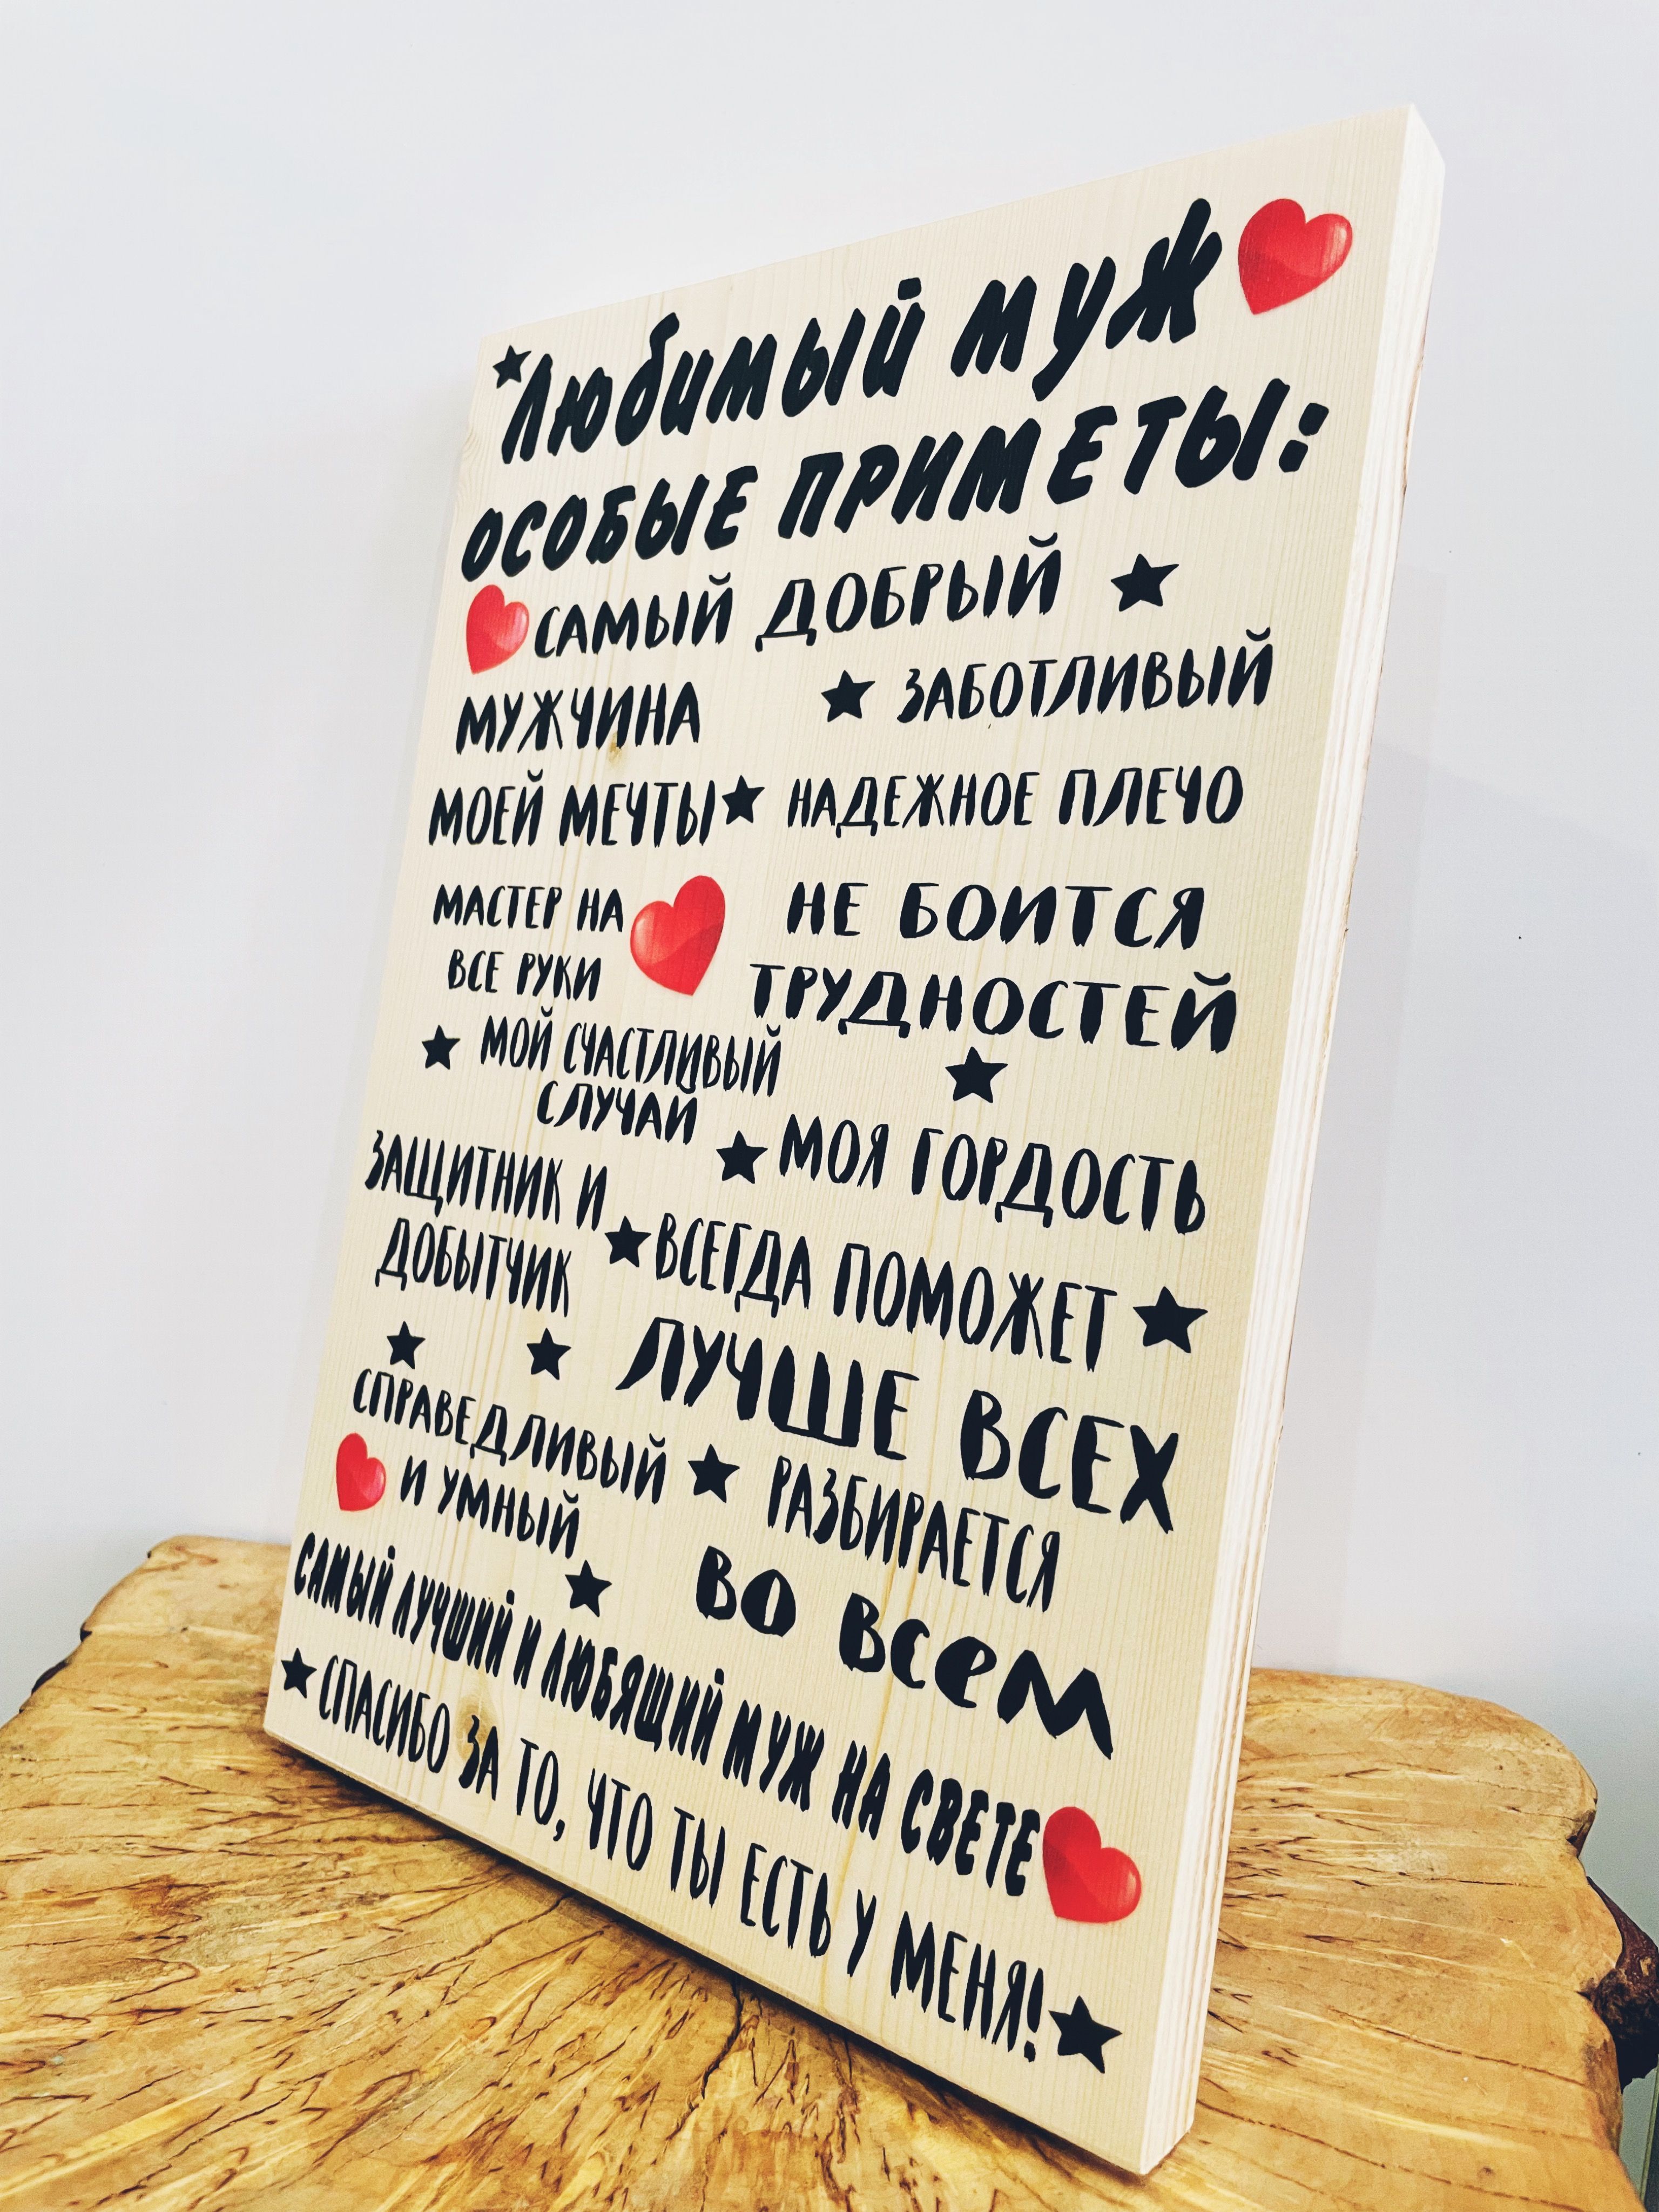 Любимый муж
ОСОБЫЕ ПРИМЕТЫ:
САМЫЙ ДОБРЫЙ
МУЖЧИНА
МОЕЙ МЕЧТЫ
ЗАБОТЛИВЫЙ
НАДЕЖНОЕ ПЛЕЧО
МАСТЕР НА
ВСЕ РУКИ
НЕ БОИТСЯ
ТРУДНОСТЕЙ
МОЙ СЧАСТЛИВЫЙ
СЛУЧАЙ
МОЯ ГОРДОСТЬ
ЗАЩИТНИК И
ДОБЫТЧИК
ВСЕГДА ПОМОЖЕТ
ЛУЧШЕ ВСЕХ
СПРАВЕДЛИВЫЙ
И УМНЫЙ
РАЗБИРАЕТСЯ
ВО ВСЕМ
САМЫЙ ЛУЧШИЙ И ЛЮБЯЩИЙ МУЖ НА СВЕТЕ
СПАСИБО ЗА ТО, ЧТО ТЫ ЕСТЬ У МЕНЯ!